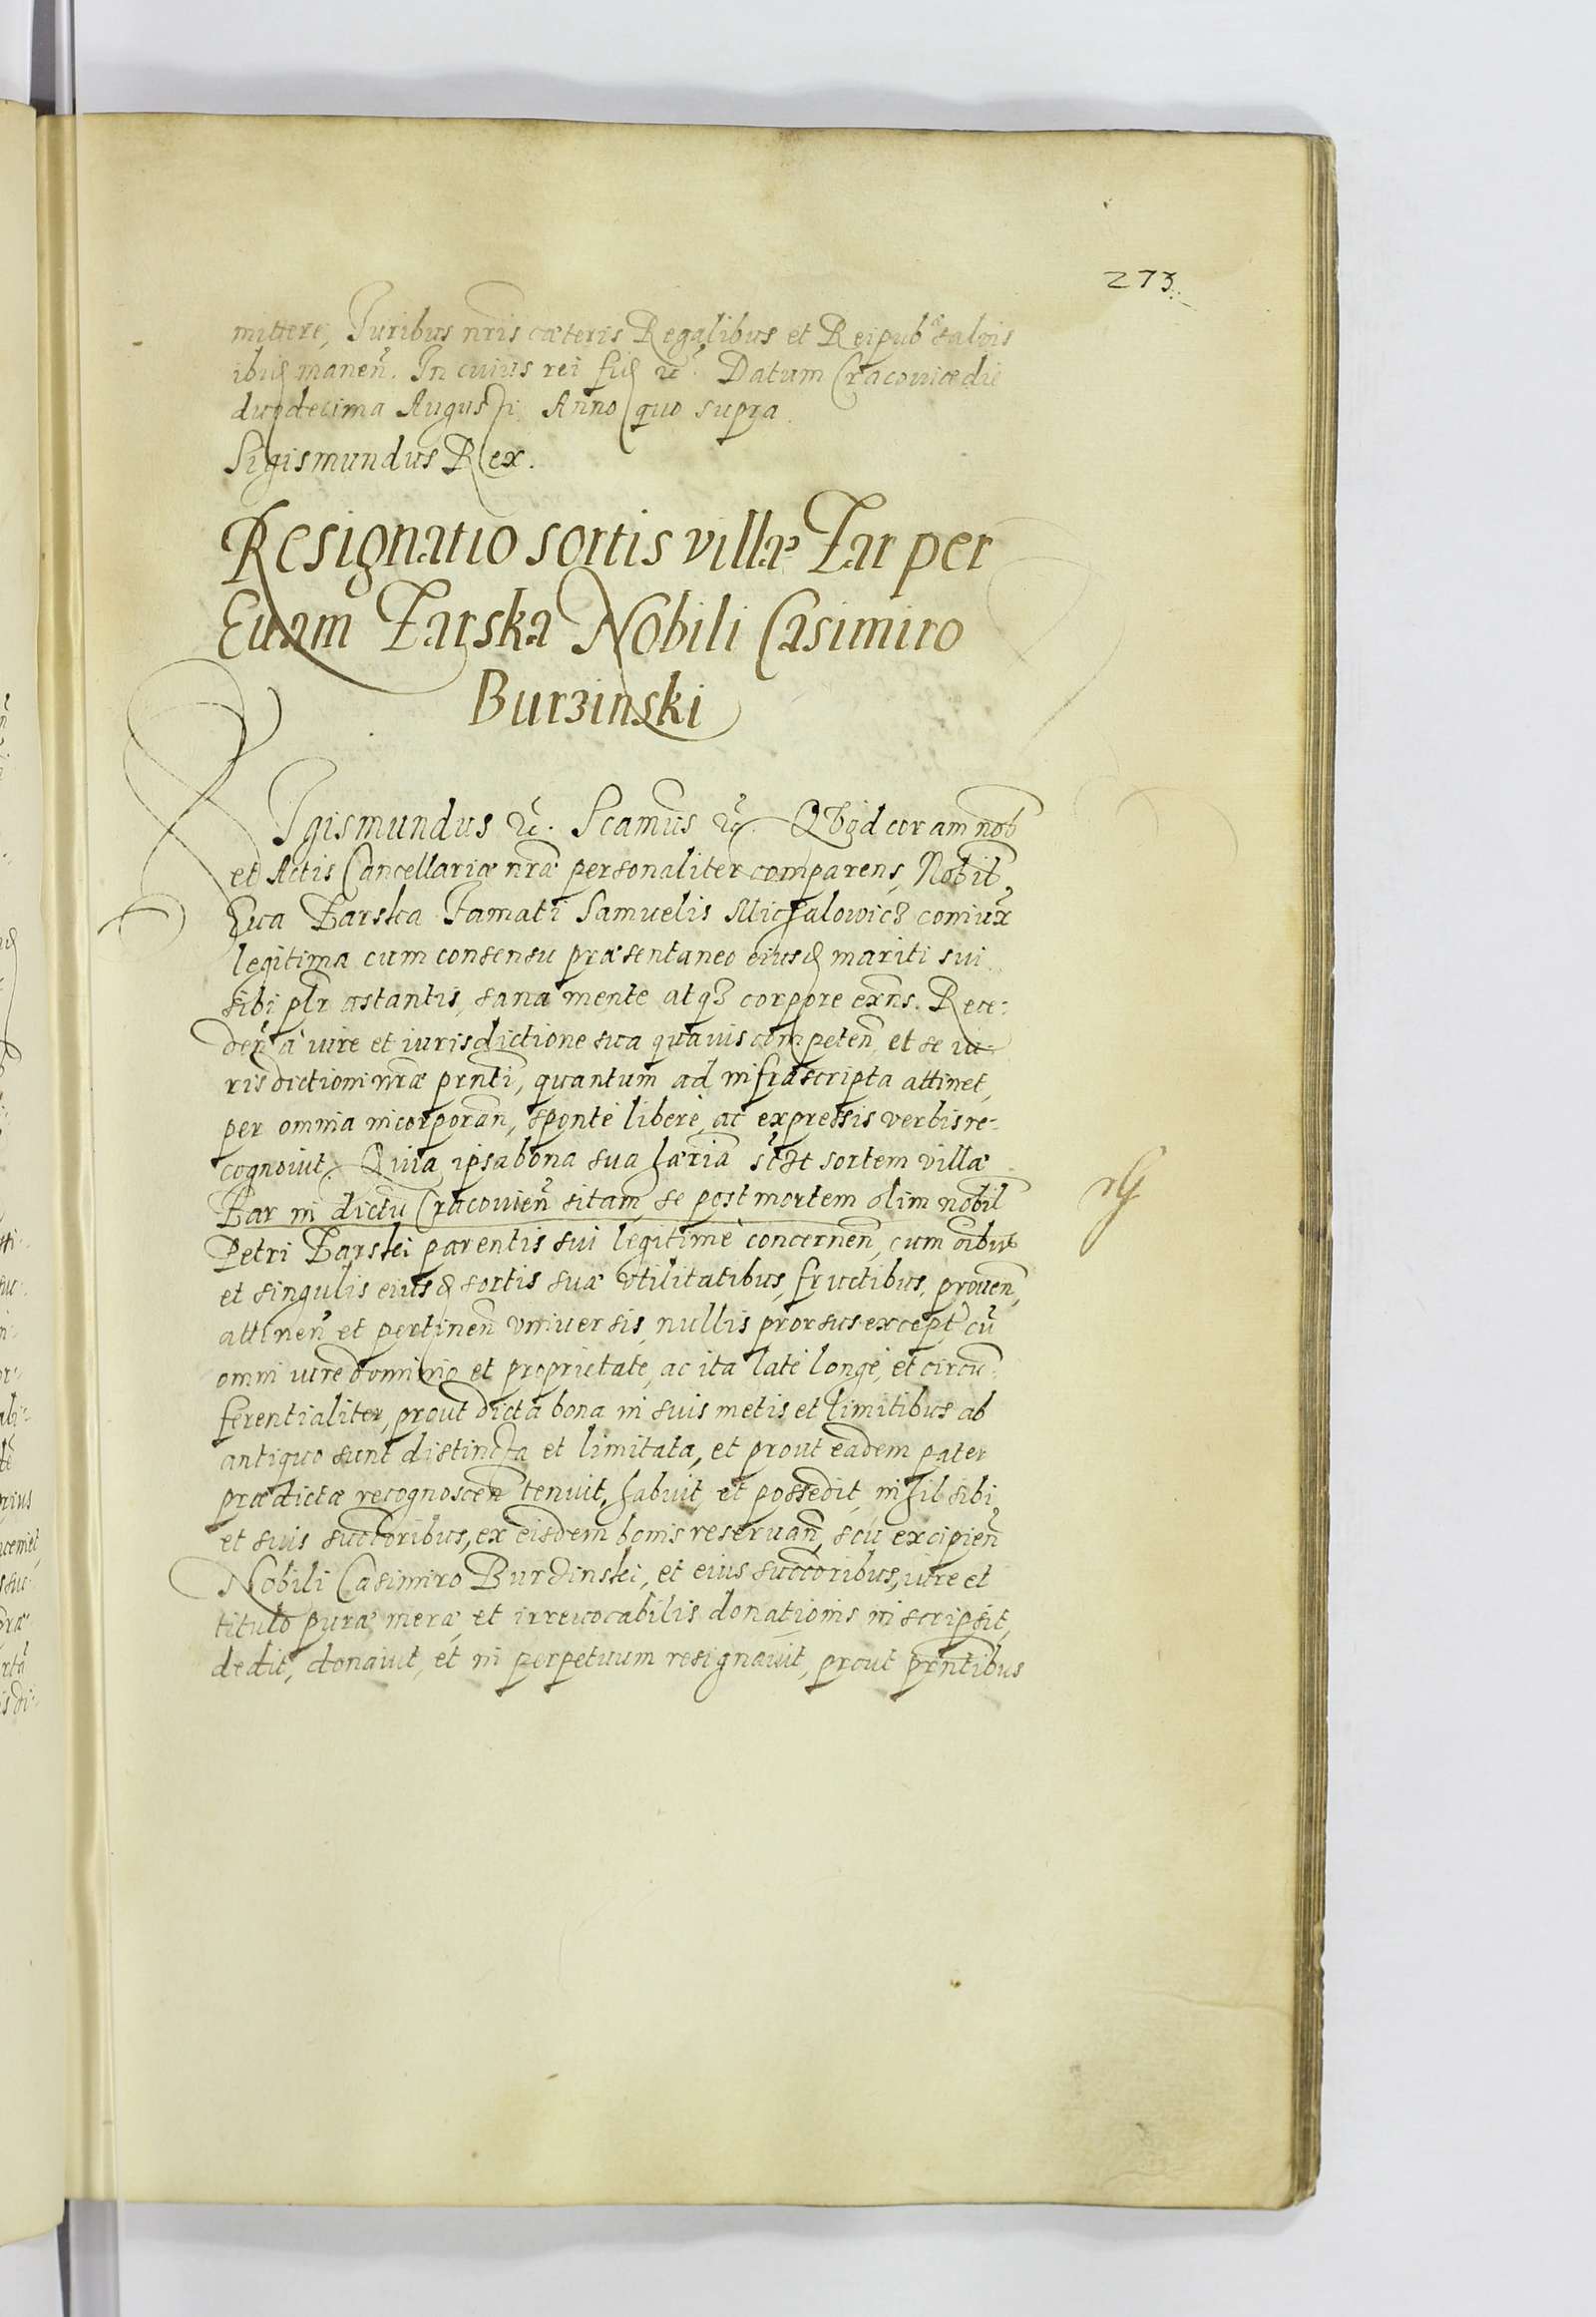 273.
mittere, Juribus nris cæteris Regalibus et Reipub salvis
ibid manen. In cuius rei fid &c. Datum Cracoviæ die
duodecima Augusti Anno quo supra.
Sigismundus Rex.
Resignatio sortis villæ Zar per
Evam Zarska Nobili Casimiro
Burzinski
Sigismundus &c. Scamus &c. Quod coram nob
et Actis Cancellariæ nræ personaliter comparens, Nobil
Eva Zarska Famati Samuelis Michalowicz coniux
legitima cum consensu præsentaneo eiusd mariti sui
sibi plr astantis, sana mente atq3 corpore exns. Rece-
den à iure et iurisdictione sua quavis competen, et se iu-
risdictioni nræ prnti, quantum ad infrascripta attinet,
per omnia incorporan, sponte libere, ac expressis verbis re-
cognovit. Quia ipsa bona sua hæria sct sortem villæ
Zar in dictu Cracovien sitam, se post mortem olim nobil
Petri Zarski parentis sui legitimè concernen, cum oibus
et singulis eiusd sortis suæ utilitatibus, fructibus, proven,
attinen et pertinen universis, nullis prorsus except cu
omni iure dominio et proprietate, ac ita latè longè, et circu-
ferentialiter, prout dicta bona in suis metis et limitibus ab
antiquo sunt distincta et limitata, et prout eadem pater
prædictæ recognoscen tenuit, habuit, et possedit, nihil sibi
et suis succoribus, ex eisdem bonis reservan, seu excipien
Nobili Casimiro Burdinski, et eius succoribus, iure et
titulo puræ meræ, et irrevocabilis donationis inscripsit,
dedit, donavit, et in perpetuum resignavit, prout prntibus